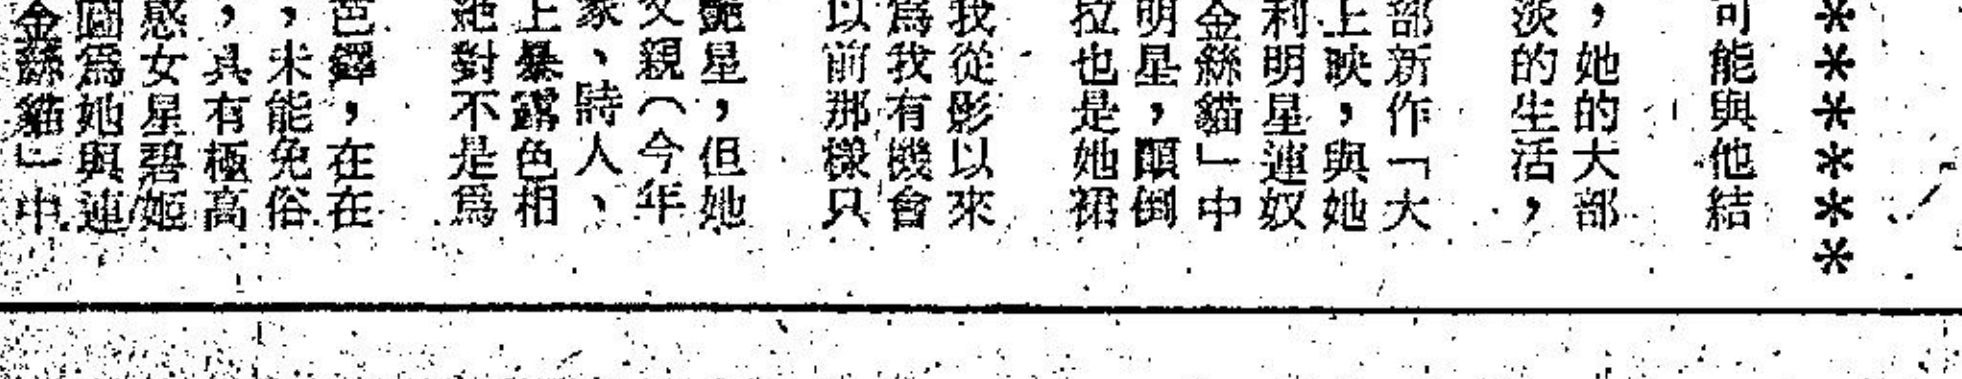 ＊＊＊＊＊＊
可能與他結
，她的大部
淡的生活，
部新作「大
上映，與她
利明星連奴
金絲貓」中
明星，顛倒
拉也是她裙
我從影以來
為我有機會
以前那樣只
艷星，但她
父親（今年
家、詩人、
上暴露色相
絕對不是爲
色鐸，在在
，未能免俗
，具有極高
惑女星碧姬
圖爲她與連
金絲貓」中